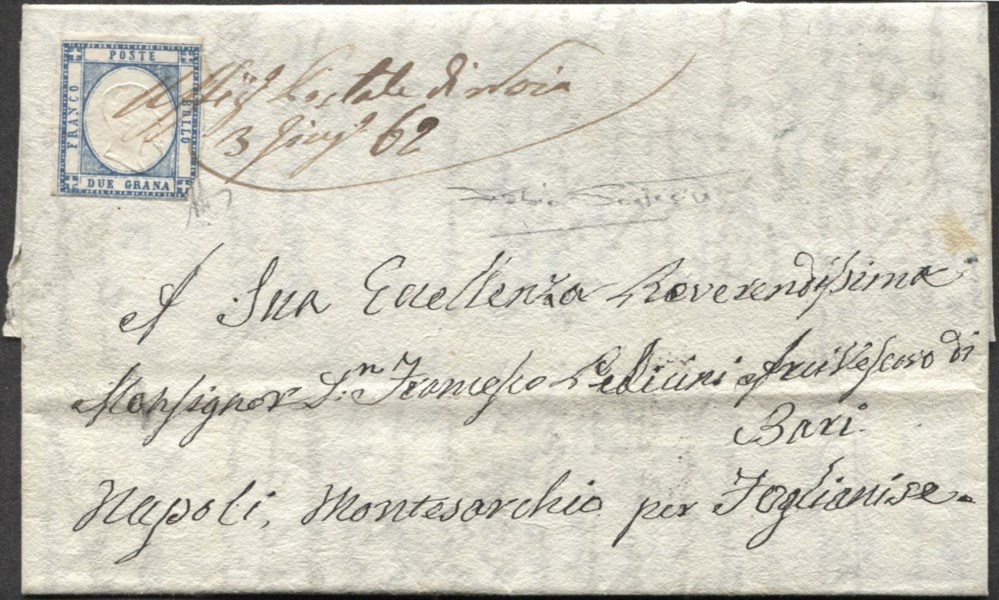 POSTE
FRANCO
BOLLO
DUE GRANA
Postale di Noia
3 Giug.º 62
A Sua Eccellenza Reverendissima
Monsignor D.n Francesco Pedicini Arcivescovo di
Bari
Napoli, Montesarchio per Foglianise.